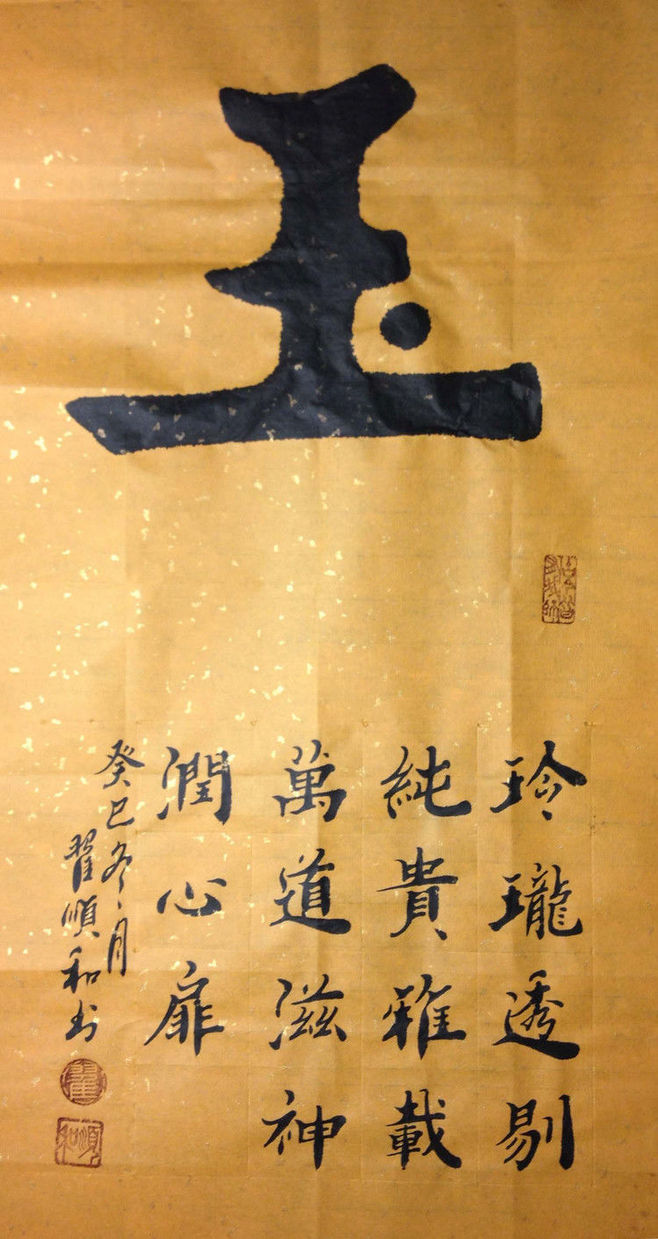 玉
玲瓏透剔
純貴雅載
萬道滋神
潤心扉
癸巳冬月
翟順和书
翟
順和